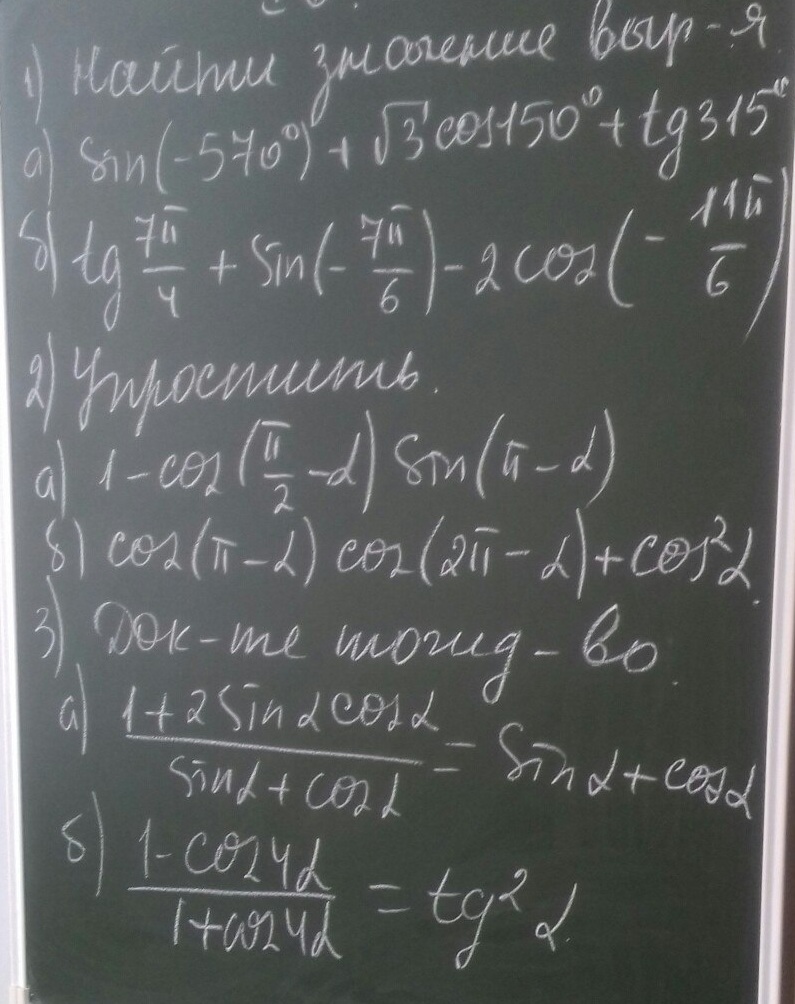 1) Найти значение выр-я
а) sin(-570°) + √3 cos150° + tg315°
б) tg 7π/4 + sin(-7π/6) - 2cos(-11π/6)
2) Упростить.
а) 1-cos(π/2-α) sin(π-α)
б) cos(π-α) cos(2π-α)+cos²α.
3) Док-те тожд-во.
а) 1+2sinαcosα/sinα+cosα = sinα+cosα
б) 1-cos4α/1+cos4α = tg²α.